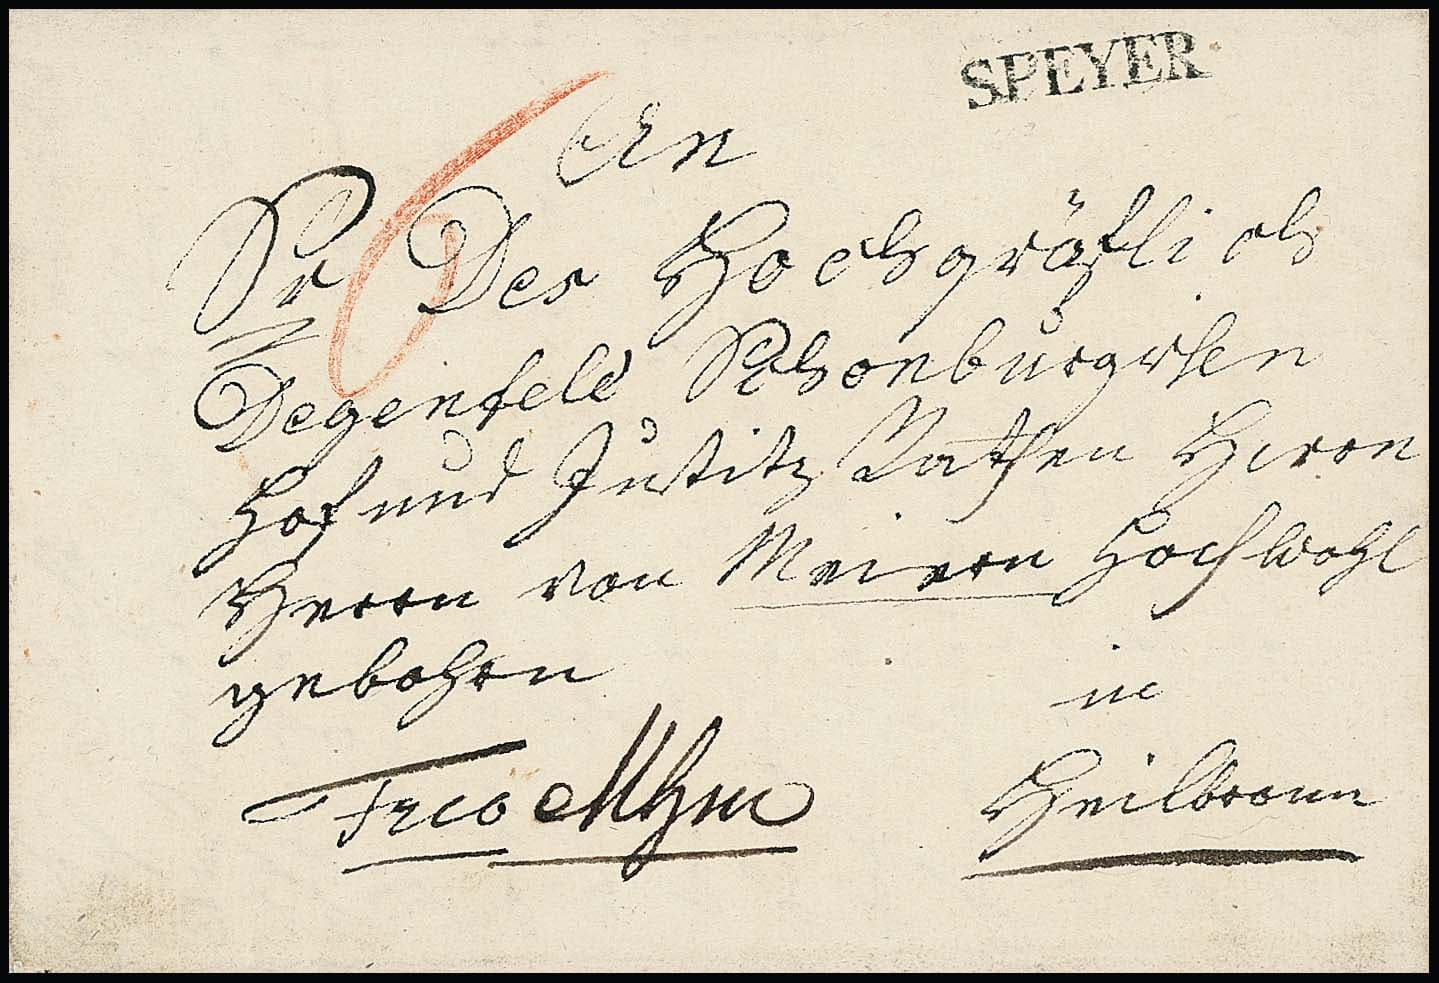 SPEYER
An
Sr 6 Des Hochgräflich
Degenfeld Schonburgischen
Hof und Justitz Rathen Herrn
Herrn von Meiern Hochwohl
gebohrn
in
Frco Mhm
Heilbronn